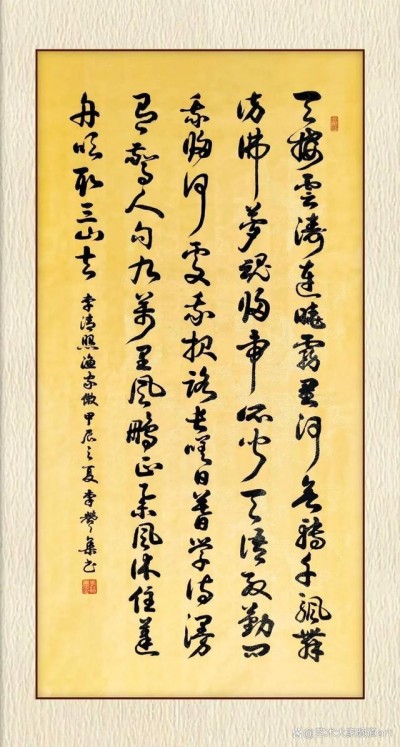 天接雲濤連曉霧星河欲轉千帆舞
彷彿夢魂歸帝所聞天語殷勤問
我歸何處我報路長嗟日暮學詩謾
有驚人句九萬里風鵬正舉風休住蓬
舟吹取三山去
李清照漁家傲甲辰之夏李集書